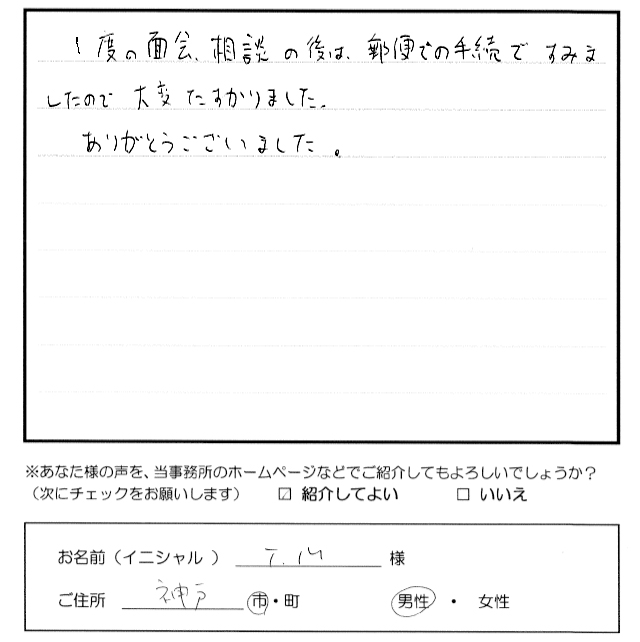 1度の面会、相談の後は、郵便での手続ですみま
したので大変たすかりました。
ありがとうございました。
※あなた様の声を、当事務所のホームページなどでご紹介してもよろしいでしょうか?
(次にチェックをお願いします) ☑ 紹介してよい □ いいえ
お名前(イニシャル) T.M 様
ご住所 神戸 市・町 男性 ・ 女性